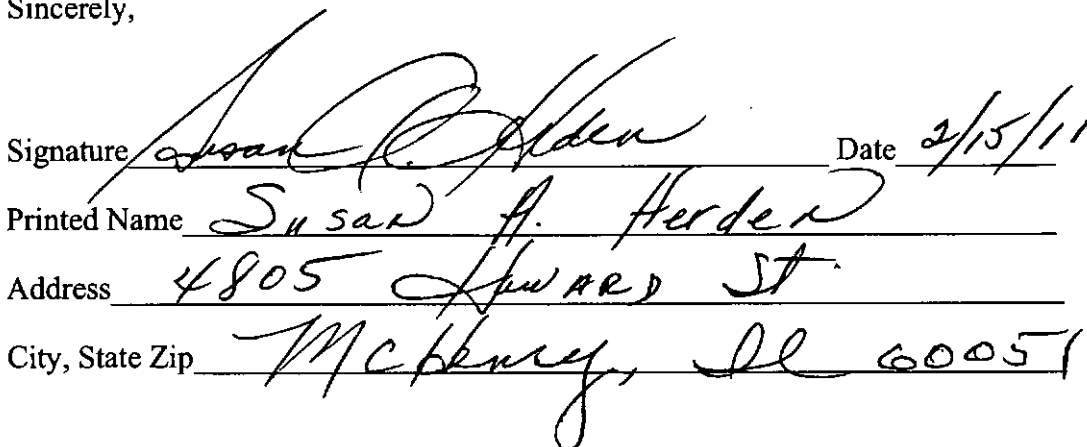 Sincerely,
Signature Susan A. Herden Date 2/15/11
Printed Name Susan A. Herden
Address 4805 Howard St.
City, State Zip McHenry, Il 60051